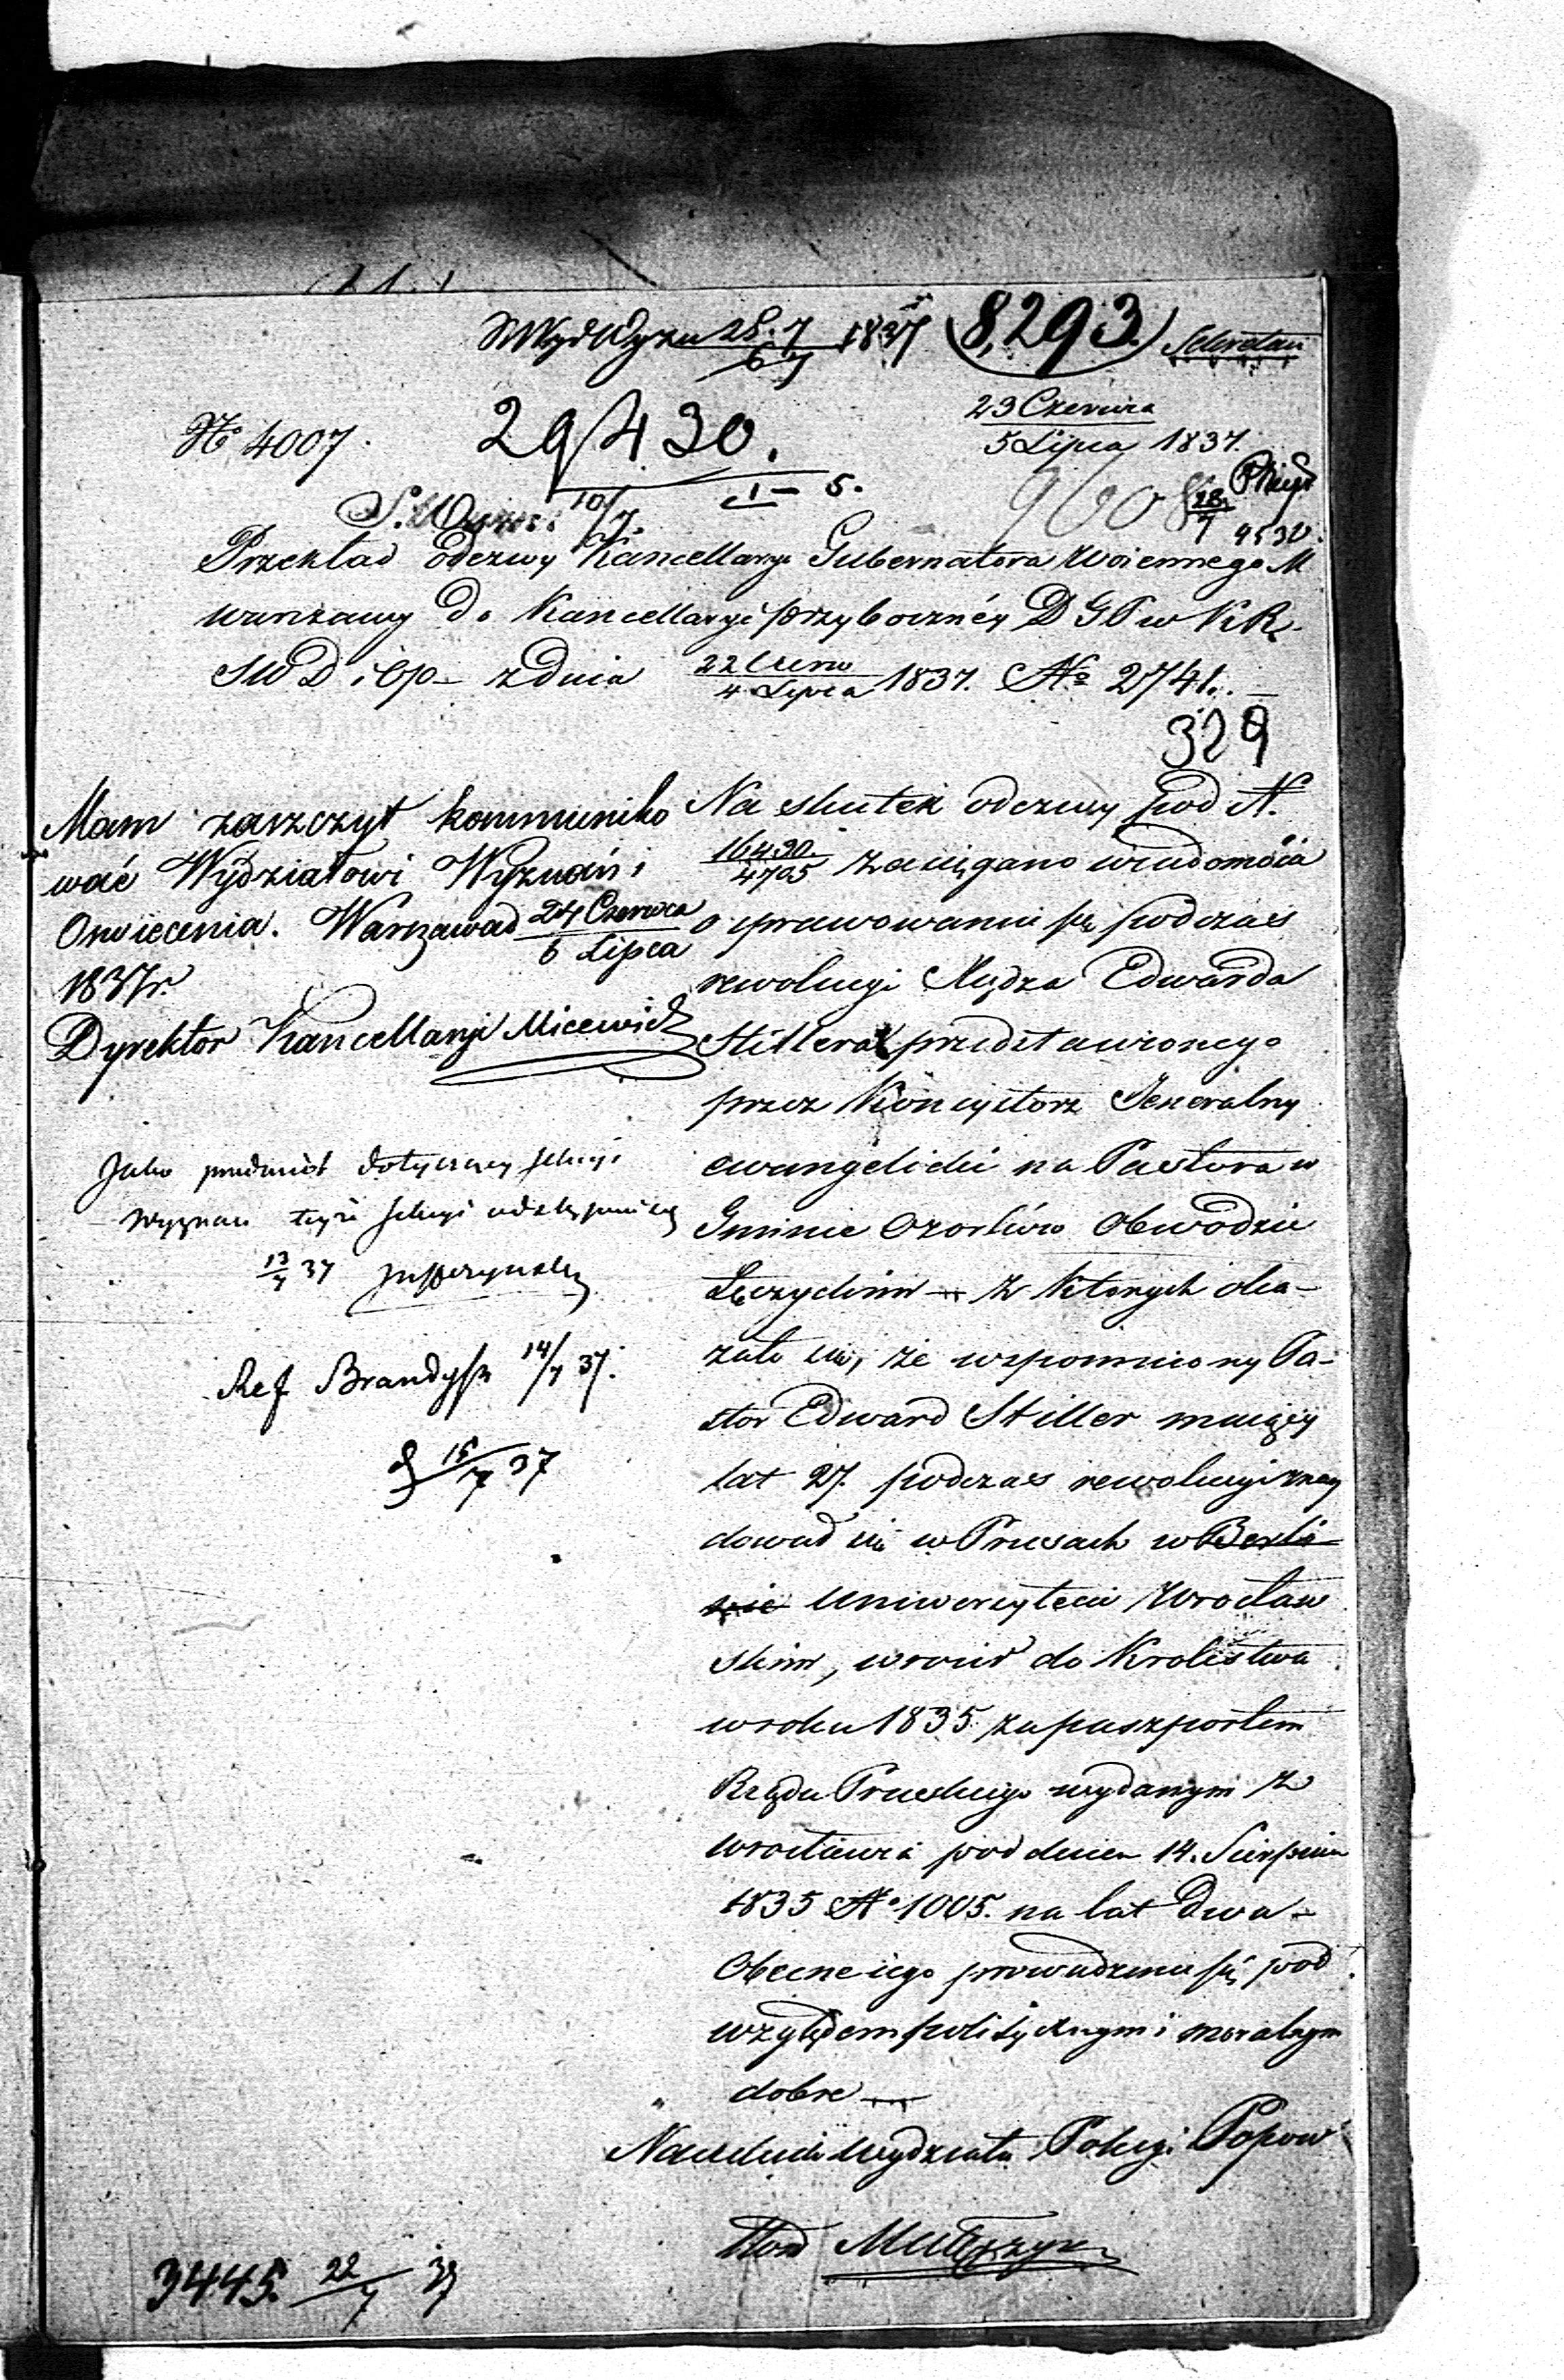 28.7 1837 8,293. Sekretarz
6 7
23 Czerwca
5 Lipca 1837.
No 4007.
29430.
10/7. 1 — 5.
9608
28/7
Przekład odezwy Kancellaryi Gubernatora Woiennego M
warszawy Do Kancellaryi przyboczney D G P w K R.
S W D i Op— z Dnia 22 Czerw / 4 Lipca 1837. No 2741. —
329
Mam zaszczyt kommuniko
wać Wydziałowi Wyznań i
Oswiecenia. Warszawa d 24 Czerwca / 6 Lipca
1837r.
Dyrektor Kancellaryi Micewicz
Jako przedmiot dotyczący sekcyi
wyznań teyże sekcyi
13/7 37
Ref Brandysz 14/7 37.
15/7 37
Na skutek odezwy pod N.
16430/4705 zasięgano wiadomości
o sprawowaniu się podczas
rewolucyi Xiędza Edwarda
Stillera przedstawionego
przez Konsystorz Jeneralny
ewangelicki na Pastora w
Gminie Ozorków Obwodzie
Łęczyckim — z ktorych oka-
zało się, że wspomniony Pa-
stor Edward Stiller maiący
lat 27. podczas rewolucyi znay
dował się w Prusach w Berli-
nie Uniwersytecie Wrocław
skim, wrócił do Krolestwa
w roku 1835 za paszportem
Rządu Pruskiego wydanym z
Wrocławia pod dniem 14. Sierpnia
1835 No 1005. na lat Dwa —
Obecne iego prowadzenie się pod
względem politycznym i moralnym
dobre —
Naczelnik Wydziału Policyi Popow
3445. 22/7 37